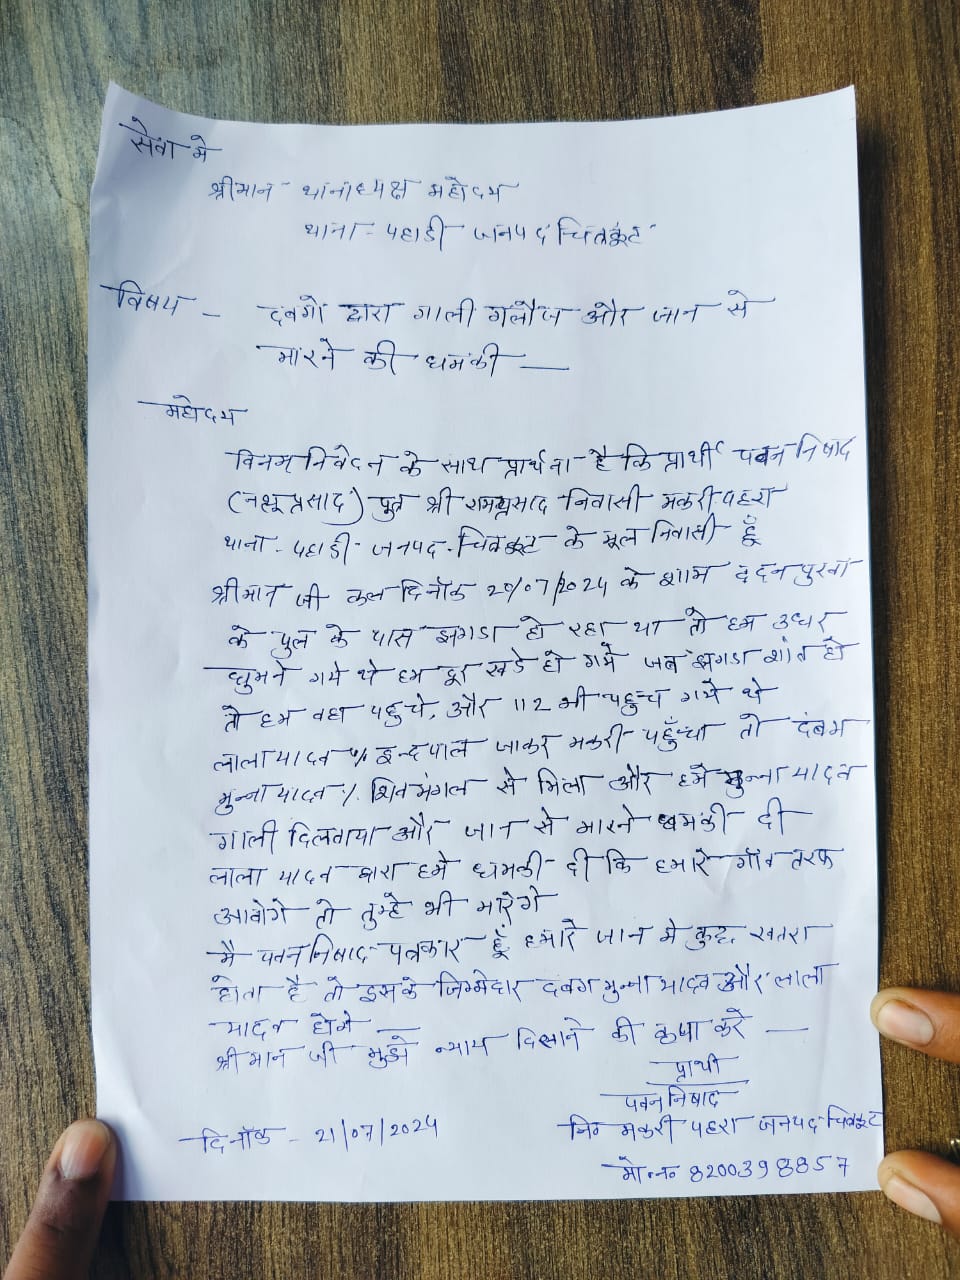 सेवा मे
श्रीमान थानाध्यक्ष महोदय
थाना - पहाडी जनपद चित्रकूट
विषय - दबगो द्वारा गाली गलौज और जान से
मारने की धमकी —
महोदय
विनम्र निवेदन के साथ प्रार्थना है कि प्रार्थी पवन निषाद
(नत्थूप्रसाद) पुत्र श्री रामप्रसाद निवासी मकरी पहरा
थाना - पहाडी - जनपद - चित्रकूट के मूल निवासी हूँ
श्रीमान जी कल दिनाँक 20/07/2024 के शाम ददन पुरवा
के पुल के पास झगडा हो रहा था तो हम उधर
घुमने गये थे हम दूर खडे हो गये जब झगडा शांत हो
तो हम वहा पहुचे, और 112 भी पहुच गये थे
लाला यादव % इन्द्रपाल जाकर मकरी पहुँचा तो दंबग
मुन्ना यादव % शिवमंगल से मिला और हमे मुन्ना यादव
गाली दिलवाया और जान से मारने धमकी दी
लाला यादव द्वारा हमे धमकी दी कि हमारे गाँव तरफ
आवोगे तो तुम्हे भी मारेगे
मै पवन निषाद पत्रकार हूँ हमारे जान मे कुछ खतरा
होता है तो इसके जिम्मेदार दबग मुन्ना यादव और लाला
यादव होगे —
श्रीमान जी मुझे न्याय दिलाने की कृपा करे —
प्रार्थी
पवन निषाद
नि० मकरी पहरा जनपद - चित्रकूट
दिनाँक - 21/07/2024
मो.न० 8200398857